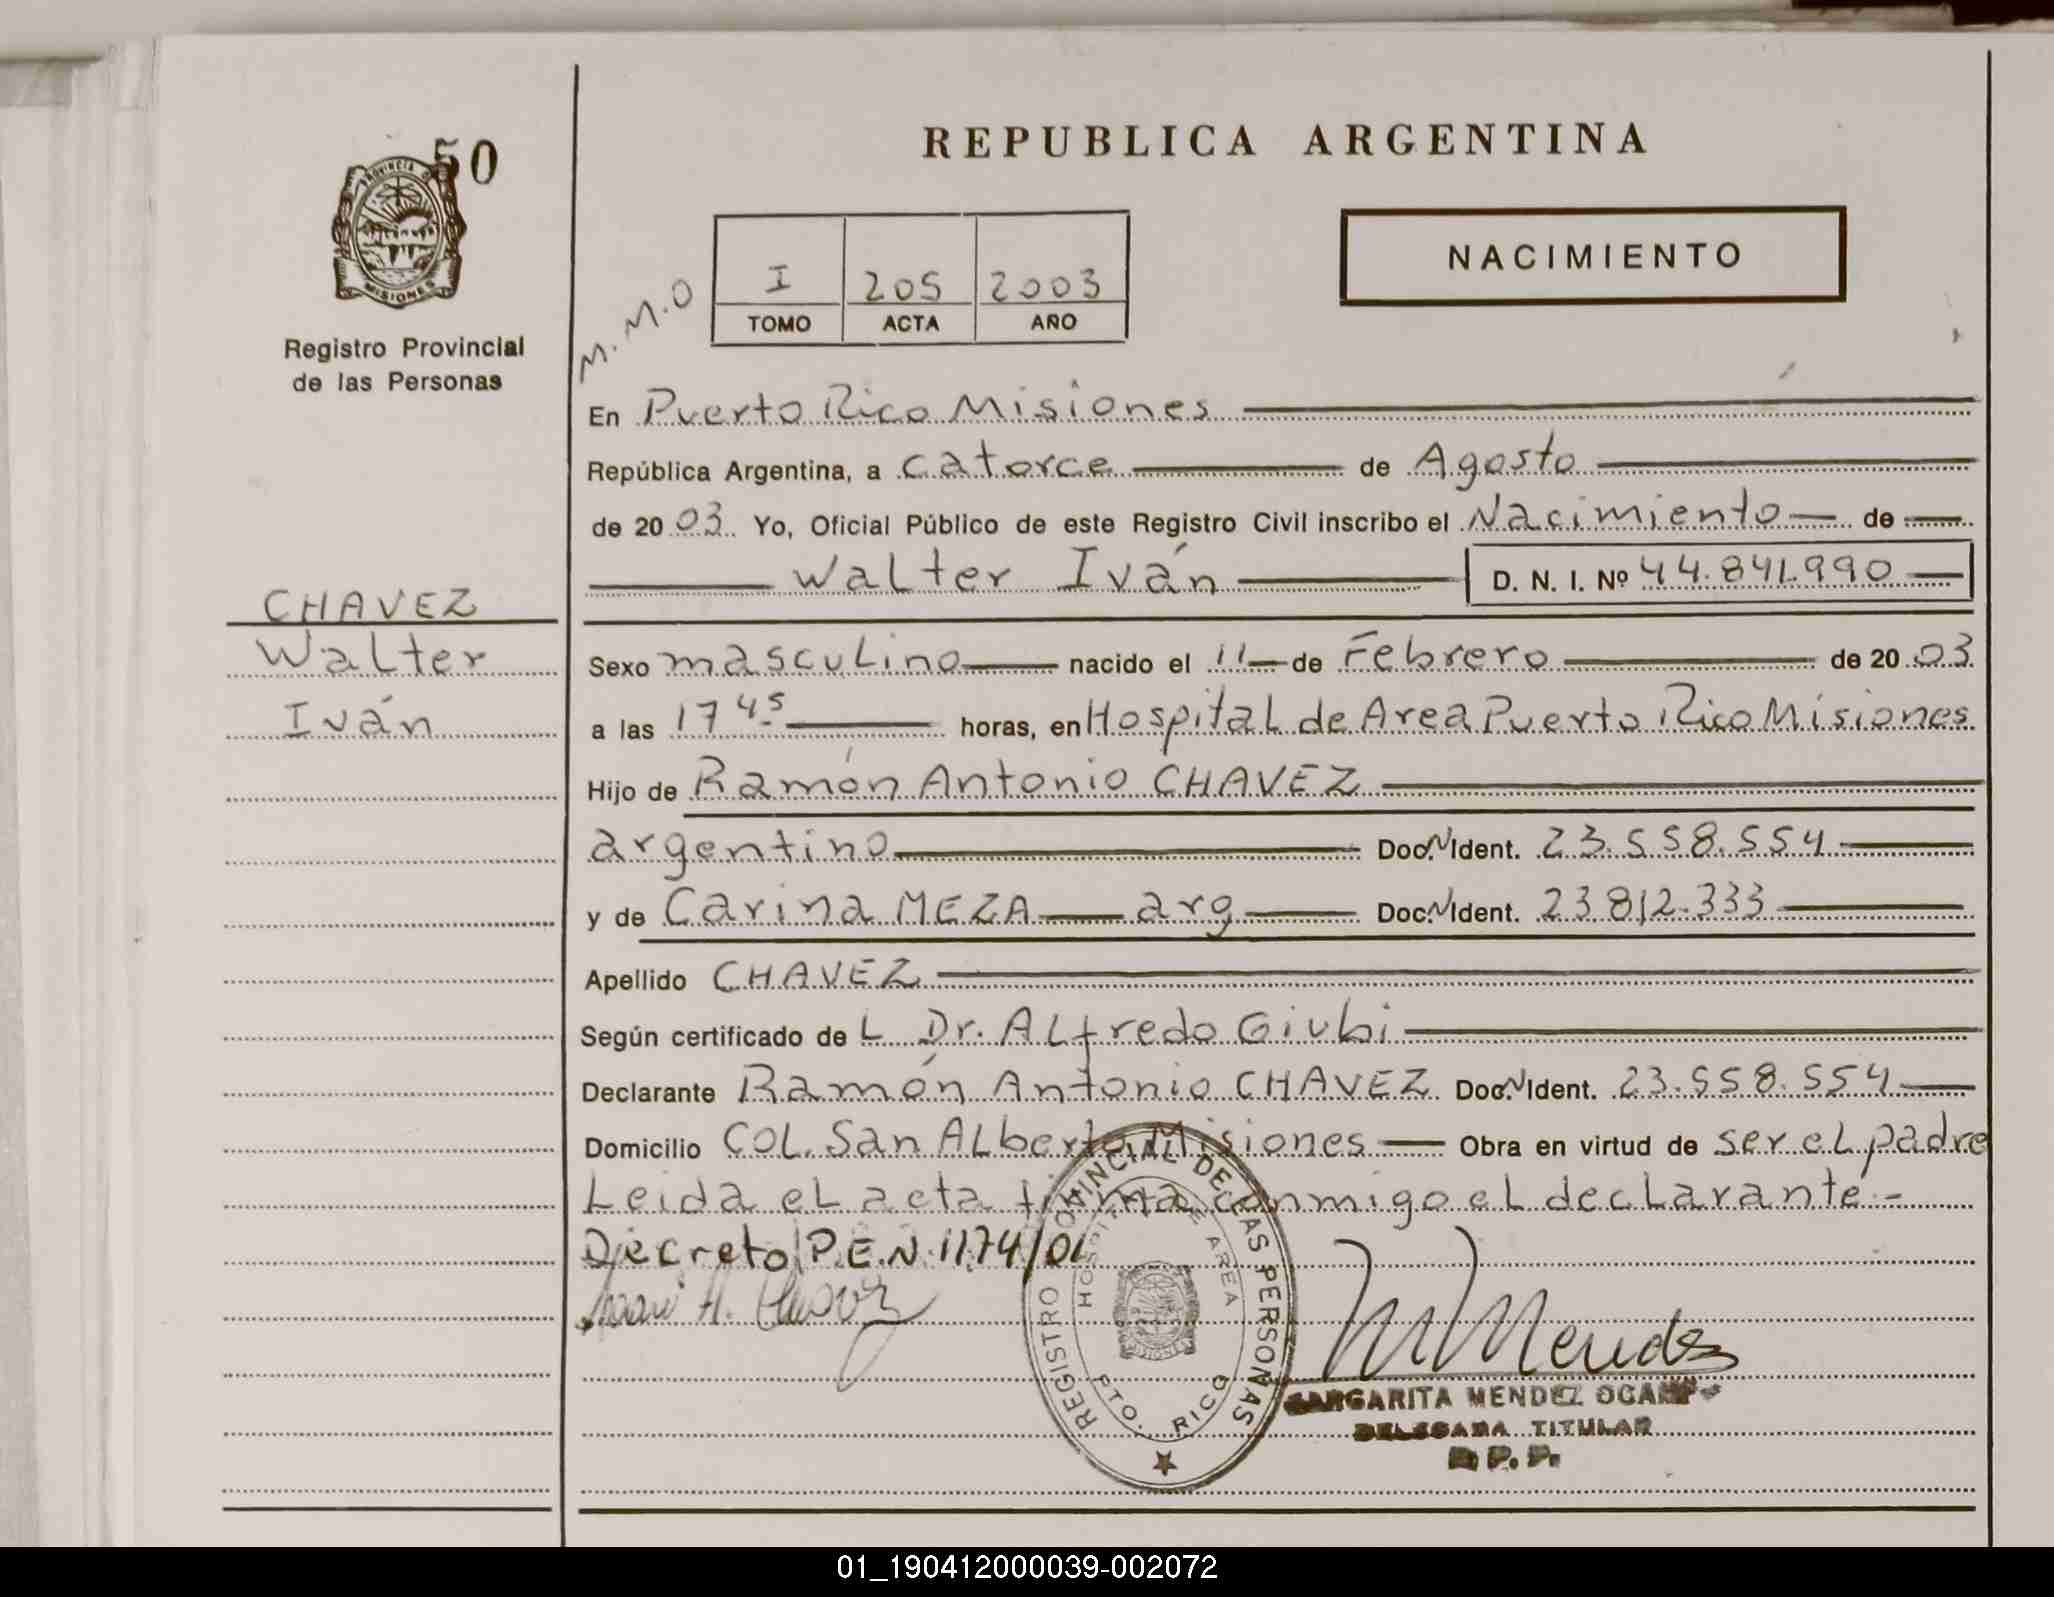 50
PROVINCIA DE
MISIONES
Registro Provincial
de las Personas
CHAVEZ
Walter
Iván
REPUBLICA ARGENTINA
NACIMIENTO
M.M.O
I 205 2003
TOMO ACTA AÑO
En Puerto Rico Misiones
República Argentina, a catorce de Agosto
de 2003 Yo, Oficial Público de este Registro Civil inscribo el Nacimiento de
Walter Iván D. N. I. Nº 44.841.990
Sexo masculino nacido el 11 de Febrero de 2003
a las 17 45 horas, en Hospital de Area Puerto Rico Misiones
Hijo de Ramón Antonio CHAVEZ
argentino Doc. N Ident. 23.558.554
y de Carina MEZA arg Doc. N Ident. 23 812.333
Apellido CHAVEZ
Según certificado de L Dr. Alfredo Giubi
Declarante Ramón Antonio CHAVEZ Doc. N Ident. 23.558.554
Domicilio COL. San Alberto Misiones Obra en virtud de ser el padre
Leida el acta firma conmigo el declarante.-
Decreto P.E.N. 1174/01
REGISTRO PROVINCIAL DE LAS PERSONAS
HOSPITAL DE AREA
PTO. RICO
M Mendez
MARGARITA MENDEZ OCAMPO
DELEGADA TITULAR
R P. P.
01_190412000039-002072